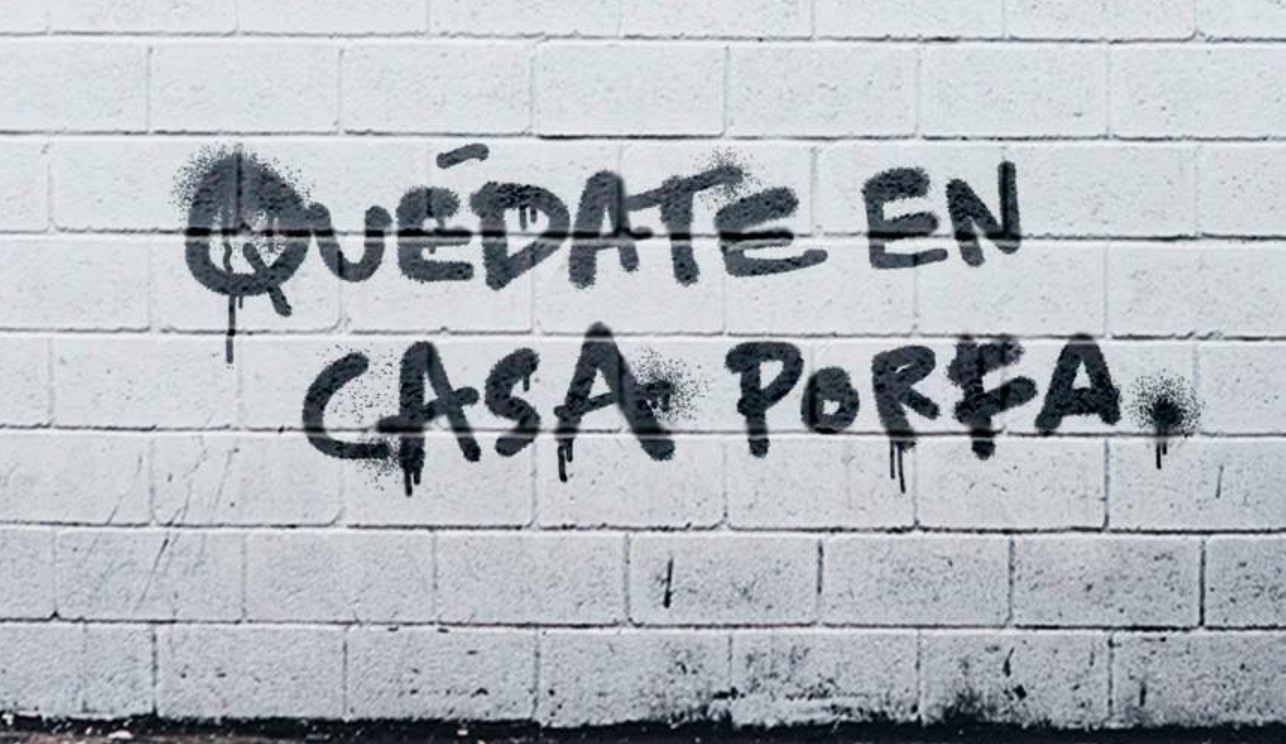 QUÉDATE EN
CASA PORFA.